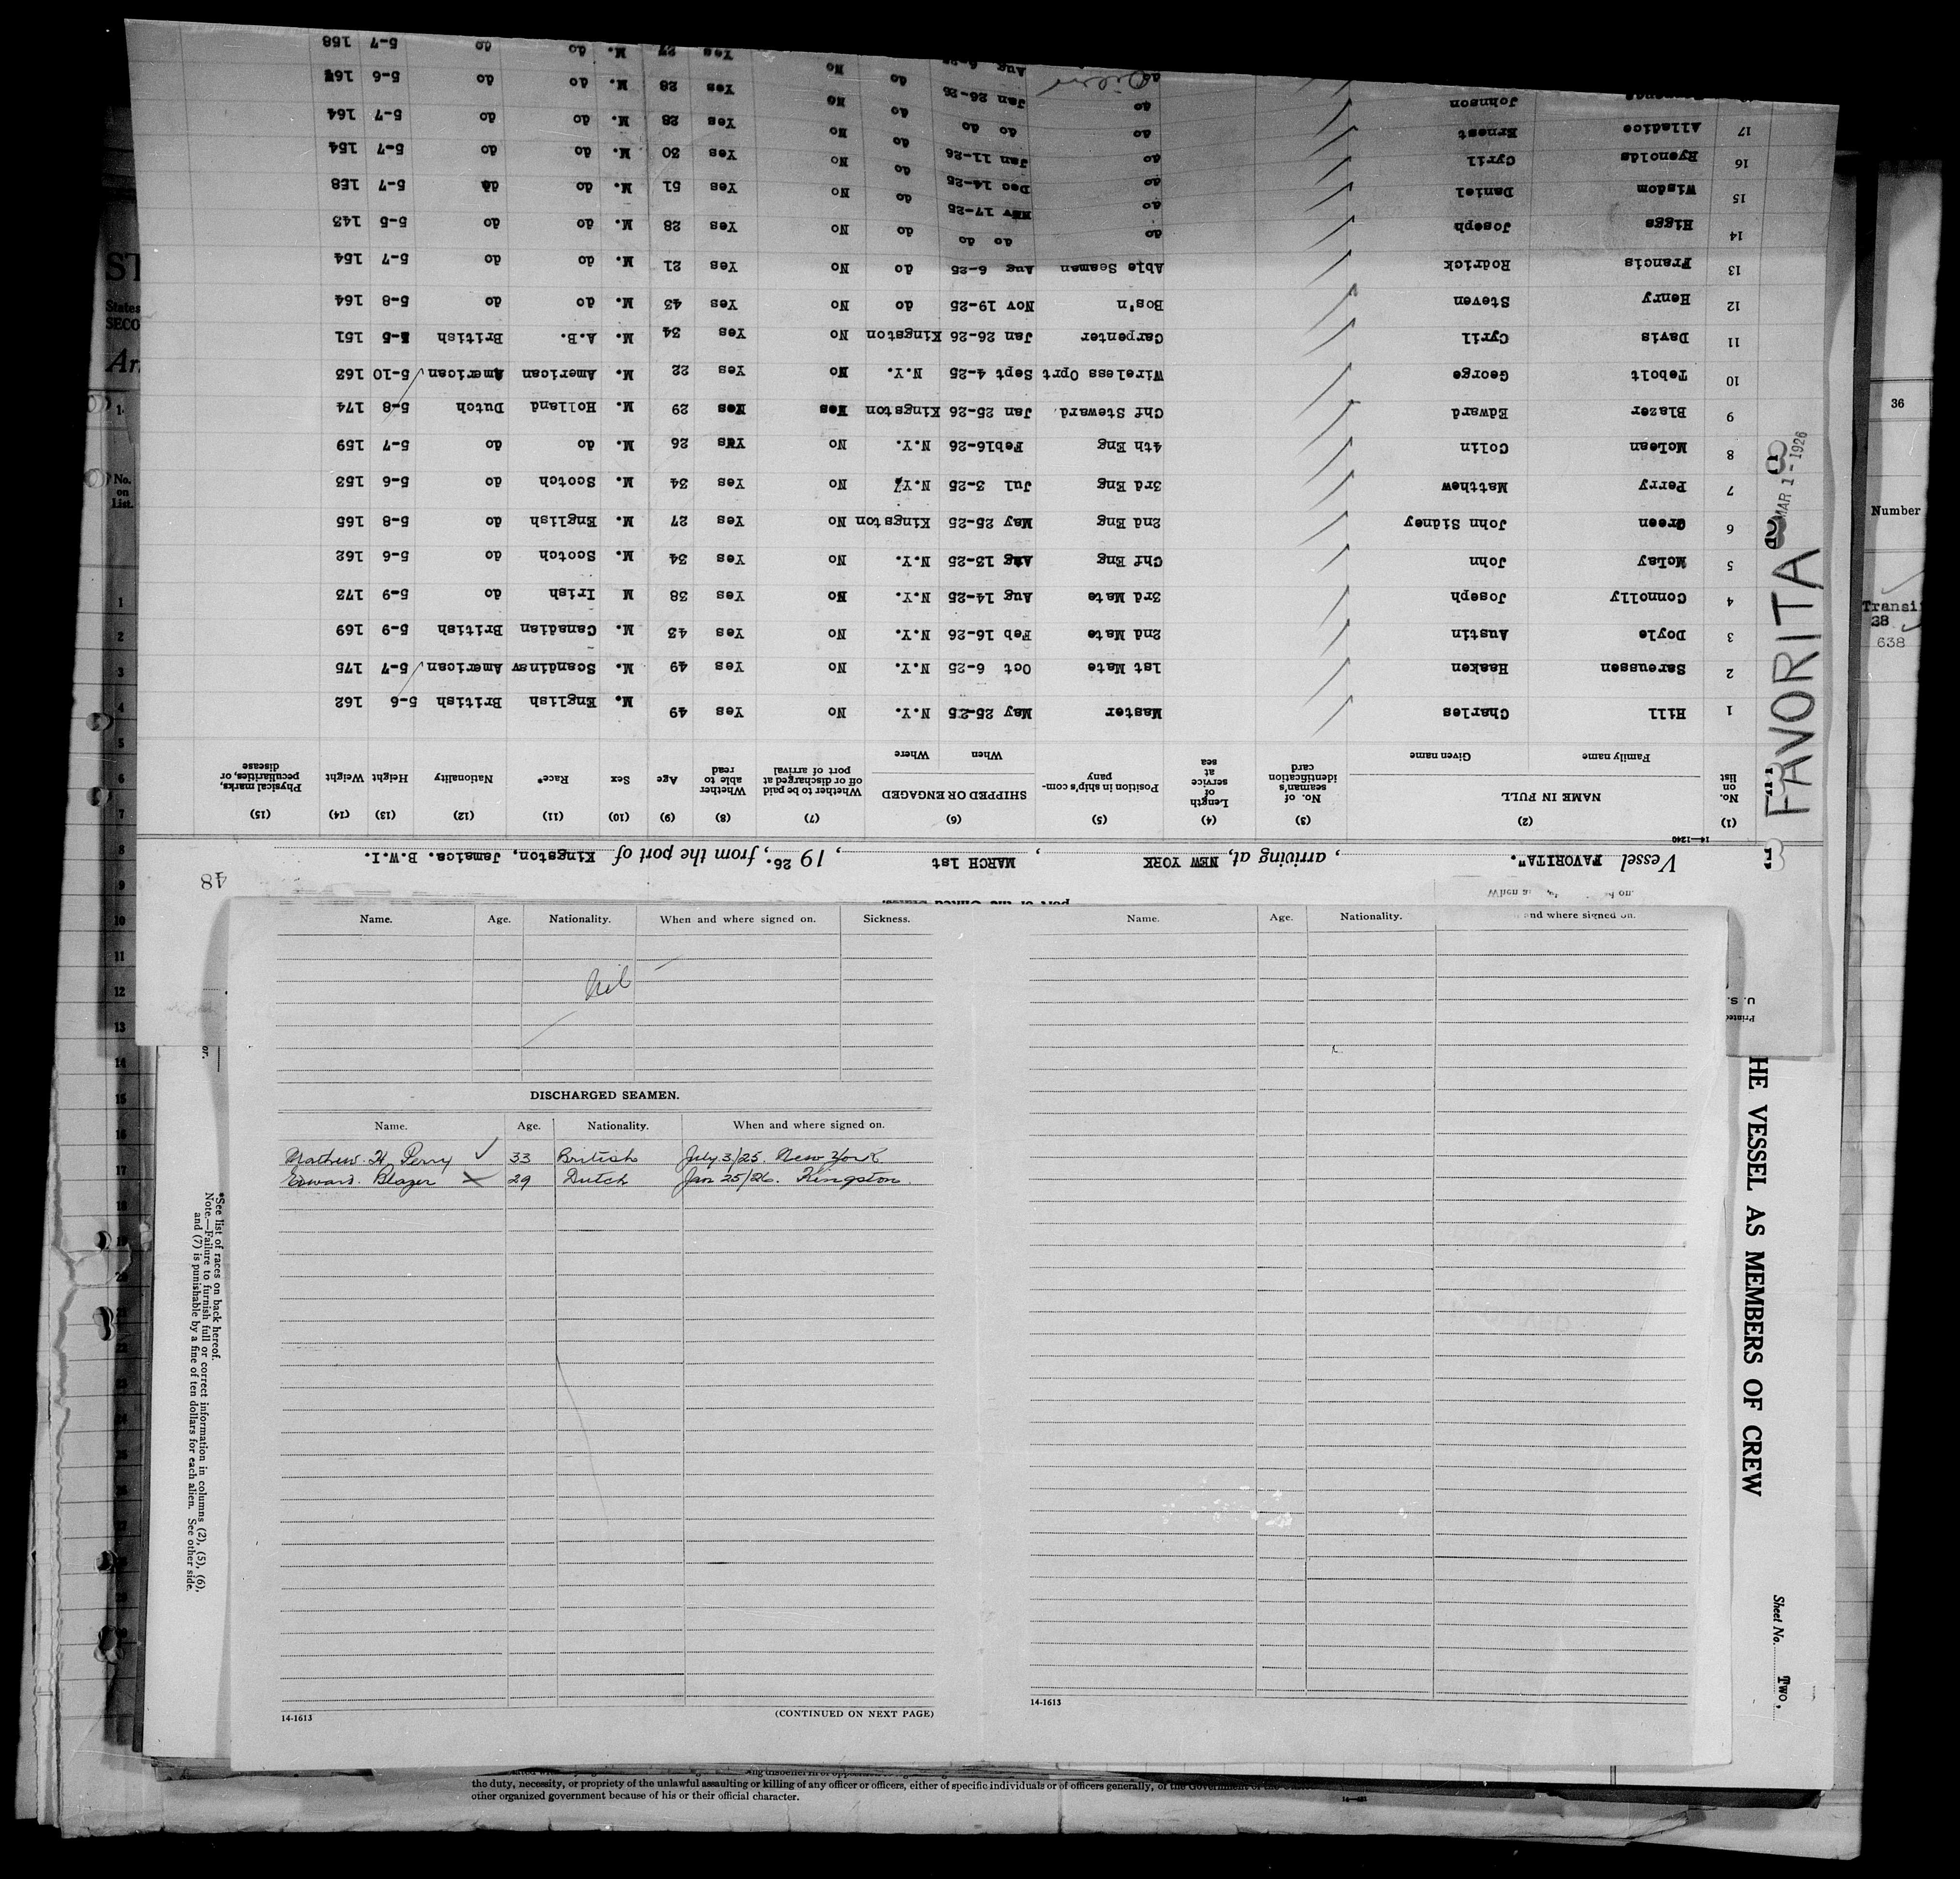 Vessel FAVORITA". , arriving at, NEW YORK MARCH 1st , 19 26. , from the port of Kingston, Jamaica. B.W.I.
48
14-1240
(1) (2) (3) (4) (5) (6) (7) (8) (9) (10) (11) (12) (13) (14) (15)
No. on list NAME IN FULL No. of seaman's identification card Length of service at sea Position in ship's company SHIPPED OR ENGAGED Whether to be paid off or discharged at port of arrival Whether able to read Age Sex Race* Nationality Height Weight Physical marks, peculiarities, or disease
Family name Given name When Where
1 Hill Charles Master May 25-25 N.Y. No Yes 49 M. English British 5-6 162
2 Sareussen Haaken 1st Mate Oct 6-25 N.Y. No Yes 49 M. Scandinav American 5-7 175
3 Doyle Austin 2nd Mate Feb 16-26 N.Y. No Yes 43 M. Canadian British 5-9 169
4 Connolly Joseph 3rd Mate Aug 14-25 N.Y. No Yes 38 M Irish do 5-9 173
5 McLay John Chf Eng Aug 13-25 N.Y. No Yes 34 M. Scotch do 5-6 162
6 Green John Sidney 2nd Eng May 25-25 Kingston No Yes 27 M. English do 5-8 165
7 Perry Matthew 3rd Eng Jul 3-25 N.Y. No Yes 34 M. Scotch do 5-6 153
8 McLean Colin 4th Eng Feb16-26 N.Y. No Yes 26 M. do do 5-7 159
9 Blazer Edward Chf Steward. Jan 25-26 Kingston Yes Yes 29 M. Holland Dutch 5-8 174
10 Tebolt George Wireless Oprt Sept 4-25 N.Y. No Yes 22 M. American American 5-10 163
11 Davis Cyril Carpenter Jan 26-26 Kingston No Yes 34 M. A.B. British 5-5 151
12 Henry Steven Bos'n Nov 19-25 do No Yes 43 M. do do 5-8 164
13 Francis Rodrick Able Seaman Aug 6-25 do No Yes 21 M. do do 5-7 154
14 Higgs Joseph do do do do No Yes 28 M. do do 5-5 143
15 Wisdom Daniel do Nov 17-25 do No Yes 51 M. do do 5-7 158
16 Ryenolds Cyril do Dec 14-25 do No Yes 30 M. do do 5-7 154
17 Alladice Ernest do Jan 11-26 do No Yes 28 M. do do 5-7 164
Johnson do do do do No Yes 28 M. do do 5-6
do Jan 26-26 do No Yes 27 M. do do 5-7 158
FAVORITA
MAR 1 - 1926
36
Number
Transi
38
638
Name. Age. Nationality. When and where signed on. Sickness.
Nil
DISCHARGED SEAMEN.
Name. Age. Nationality. When and where signed on.
Mathew. H Perry 33 British July 3/25. New York
Edward. Blazer 29 Dutch Jan 25/26. Kingston.
14-1613
(CONTINUED ON NEXT PAGE)
Name. Age. Nationality. and where signed on.
14-1613
HE VESSEL AS MEMBERS OF CREW
Sheet No. Two,
*See list of races on back hereof.
Note.—Failure to furnish full or correct information in columns (2), (5), (6),
and (7) is punishable by a fine of ten dollars for each alien. See other side.
the duty, necessity, or propriety of the unlawful assaulting or killing of any officer or officers, either of specific individuals or of officers generally, of the Government of the
other organized government because of his or their official character.